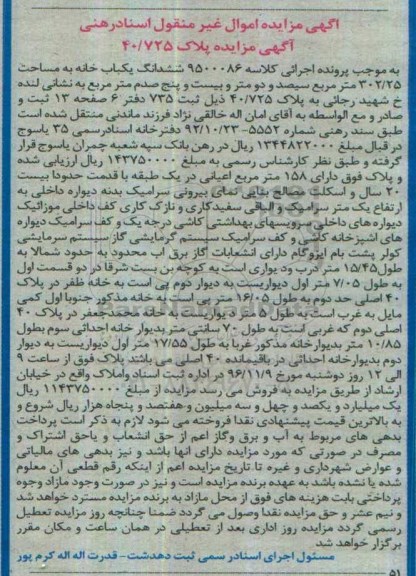 آگهی مزایده اموال غیر منقول اسنادرهنی
آگهی مزایده پلاک ۴۰/۷۲۵
به موجب پرونده اجرائی کلاسه ۹۵۰۰۰۸۶ ششدانگ یکباب خانه به مساحت
۳۰۲/۲۵ متر مربع سیصد و دو متر و بیست و پنج صدم متر مربع به نشانی لنده
خ شهید رجائی به پلاک ۴۰/۷۲۵ ذیل ثبت ۷۳۵ دفتر ۶ صفحه ۱۳ ثبت و
صادر و مع الواسطه به آقای امان اله خالقی نژاد فرزند ماندنی منتقل شده است
طبق سند رهنی شماره ۵۵۵۲-۹۲/۱۰/۲۳ دفترخانه اسنادرسمی ۳۵ یاسوج
در قبال مبلغ ۱۳۴۴۸۲۲۰۰۰ ریال در رهن بانک سپه شعبه چمران یاسوج قرار
گرفته و طبق نظر کارشناس رسمی به مبلغ ۱۱۴۳۷۵۰۰۰۰ ریال ارزیابی شده
و پلاک فوق دارای ۱۵۸ متر مربع اعیانی در یک طبقه با قدمت حدودا بیست
۲۰ سال و اسکلت مصالح بنایی نمای بیرونی سرامیک بدنه دیواره داخلی به
ارتفاع یک متر سرامیک و الباقی سفیدکاری و نازک کاری کف داخلی موزائیک
دیواره های داخلی سرویسهای بهداشتی کاشی درجه یک و کف سرامیک دیواره
های اشپزخانه کاشی و کف سرامیک سیستم گرمایشی گاز سیستم سرمایشی
کولر پشت بام ایزوگام دارای انشعابات گاز برق اب محدود به حدود شمالا به
طول ۱۵/۴۵ متر درب ود یواری است به کوچه بن بست شرقا در دو قسمت اول
به طول ۷/۰۵ متر اول دیواریست به دیوار دوم پی است به خانه ظفر در پلاک
۴۰ اصلی حد دوم به طول ۱۶/۰۵ متر پی است به خانه مذکور جنوبا اول کمی
مایل به غرب است به طول ۱۵ متر دیواریست به خانه محمدجعفر در پلاک ۴۰
اصلی دوم که غربی است به طول ۷۰ سانتی متر بدیوار خانه احداثی سوم بطول
۱۰/۸۵ متر بدیوارخانه مذکور غربا به طول ۱۷/۵۵ متر اول دیواریست به دیوار
دوم بدیوارخانه احداثی در باقیمانده ۴۰ اصلی می باشد پلاک فوق از ساعت ۹
الی ۱۲ روز دوشنبه مورخ ۹۶/۱۱/۹ در اداره ثبت اسناد واملاک واقع در خیابان
ارشاد از طریق مزایده به فروش می رسد مزایده از مبلغ ۱۱۴۳۷۵۰۰۰۰ ریال
یک میلیارد و یکصد و چهل و سه میلیون و هفتصد و پنجاه هزار ریال شروع و
به بالاترین قیمت پیشنهادی نقدا فروخته می شود لازم به ذکر است پرداخت
بدهی های مربوط به آب و برق وگاز اعم از حق انشعاب و یاحق اشتراک و
مصرف در صورتی که مورد مزایده دارای انها باشد و نیز بدهی های مالیاتی
و عوارض شهرداری و غیره تا تاریخ مزایده اعم از اینکه رقم قطعی آن معلوم
شده یا نشده باشد به عهده برنده مزایده است و نیز در صورت وجود مازاد وجوه
پرداختی بابت هزینه های فوق از محل مازاد به برنده مزایده مسترد خواهد شد
و نیم عشر و حق مزایده نقدا وصول می گردد ضمنا چنانچه روز مزایده تعطیل
رسمی گردد مزایده روز اداری بعد از تعطیلی در همان ساعت و مکان مقرر
برگزار خواهد شد
مسئول اجرای اسنادر سمی ثبت دهدشت- قدرت اله اله کرم پور
۵۱